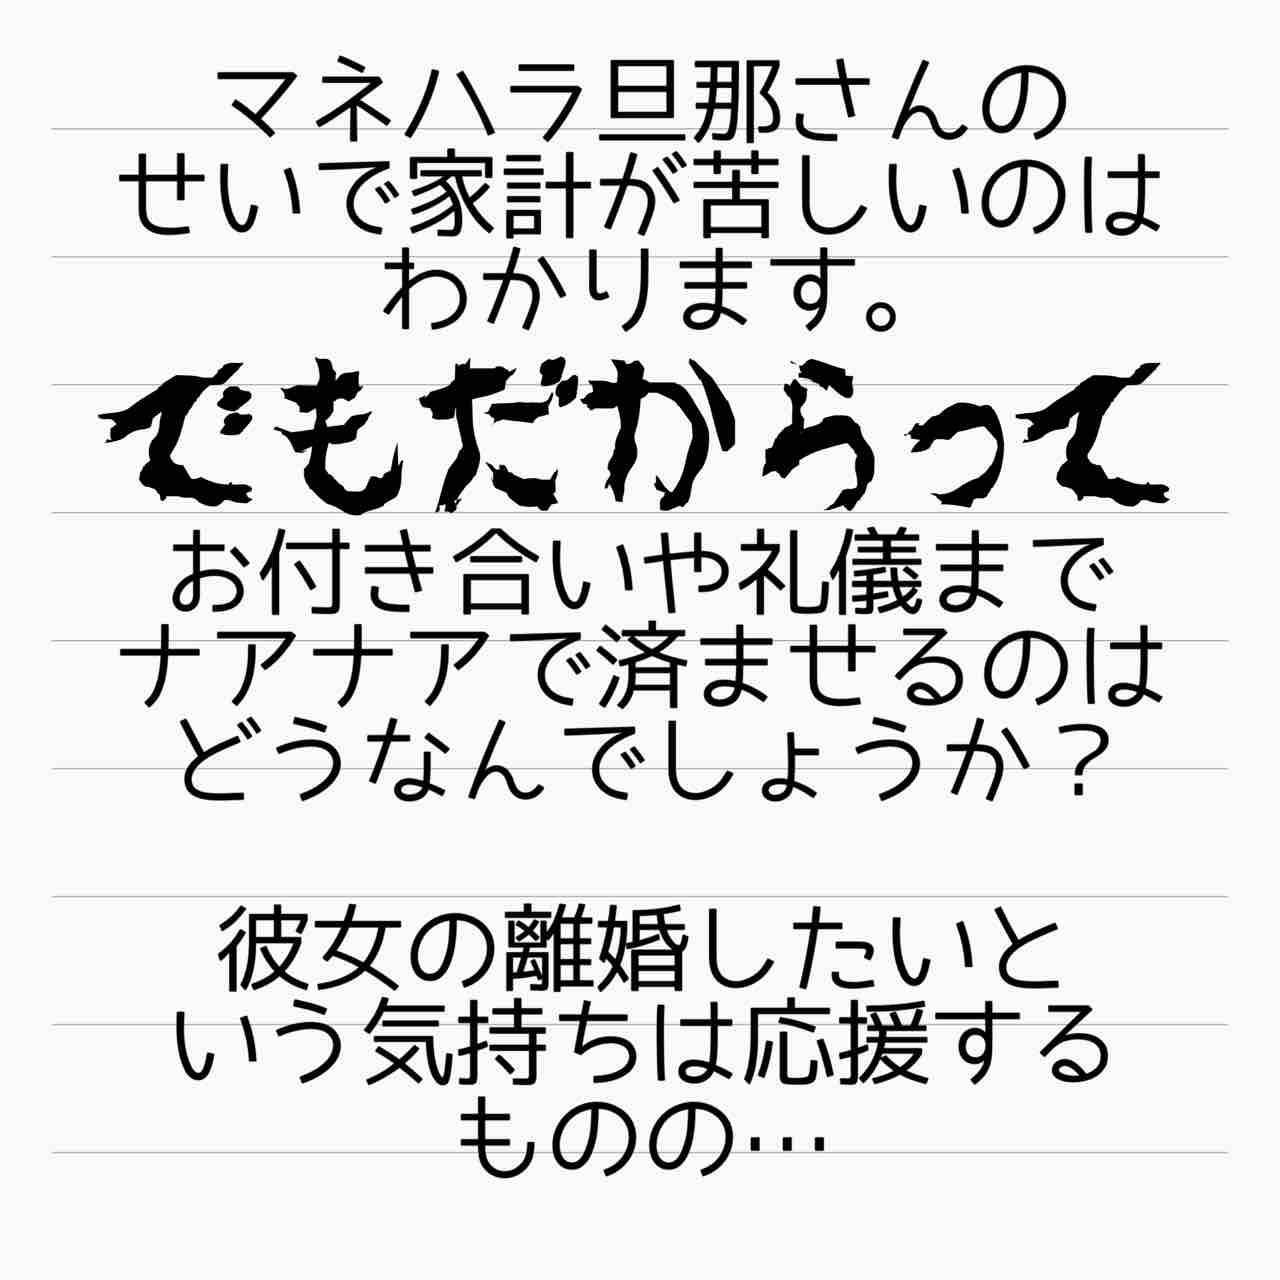 マネハラ旦那さんの
せいで家計が苦しいのは
わかります。
でもだからって
お付き合いや礼儀まで
ナアナアで済ませるのは
どうなんでしょうか？
彼女の離婚したいと
いう気持ちは応援する
ものの…